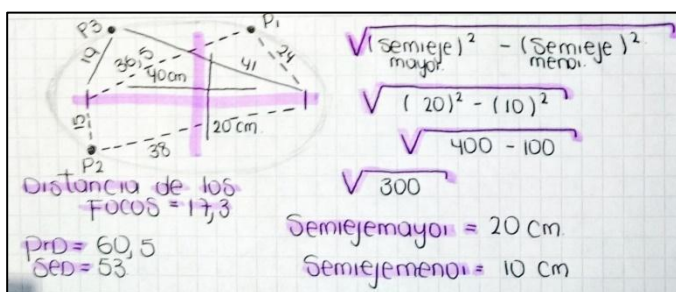 P3
P1
19
36,5
24
40cm
41
15
20 cm.
38
P2
Distancia de los
Focos = 17,3
PrD = 60,5
SeD = 53
√(semieje mayor.)² - (semieje menor.)²
√(20)² - (10)²
√400 - 100
√300
Semiejemayor = 20 cm.
Semiejemenor = 10 cm